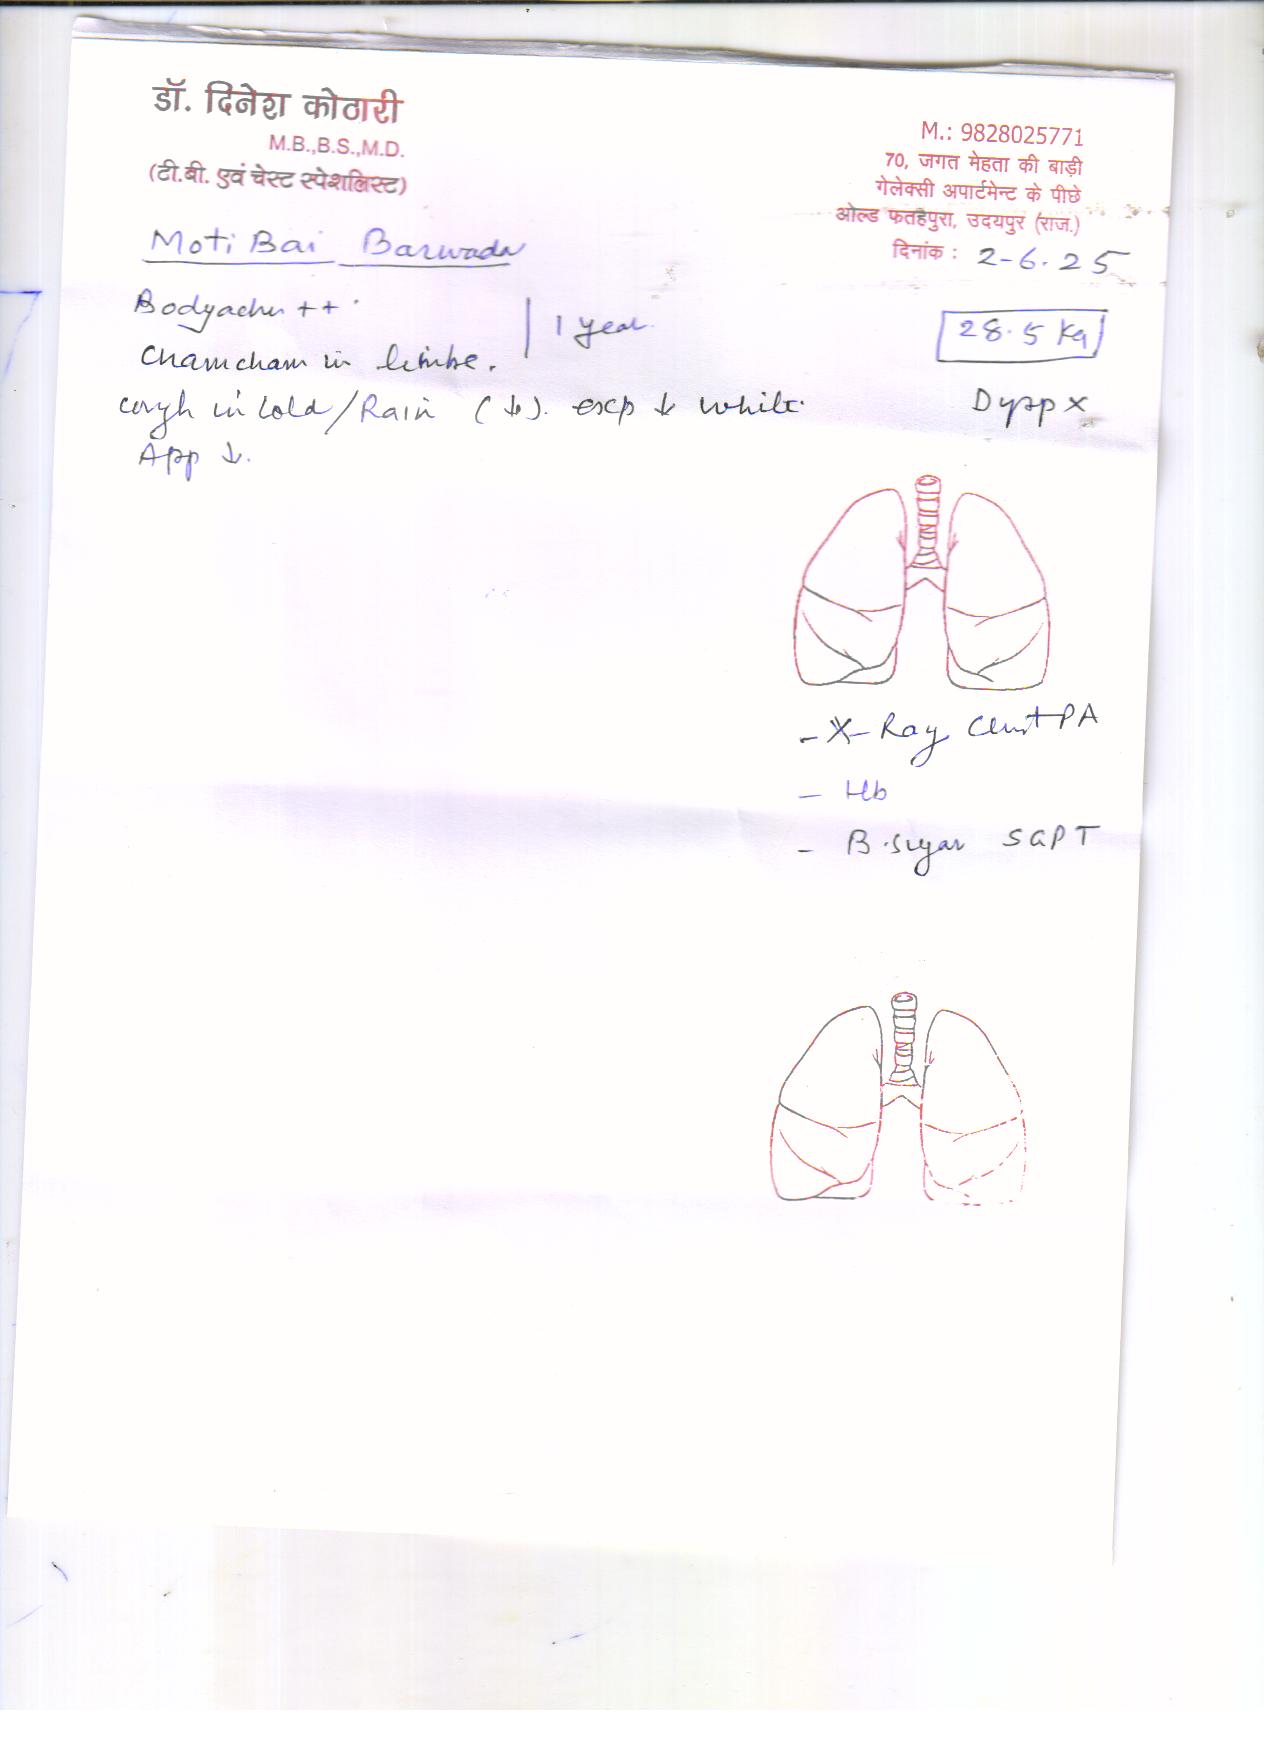 डॉ. दिनेश कोठारी
M.B.,B.S.,M.D.
(टी.बी. एवं चेस्ट स्पेशलिस्ट)
M.: 9828025771
70, जगत मेहता की बाड़ी
गेलेक्सी अपार्टमेन्ट के पीछे
ओल्ड फतहपुरा, उदयपुर (राज.)
दिनांक : 2-6.25
Moti Bai Barwada
Bodyaches ++
1 year
28.5 Kg
Chamcham in limbs.
Cough in Cold/Rain (↓). exp ↓ white
Dysp x
App ↓.
- X-Ray Chest PA
- Hb
- B.sugar SGPT